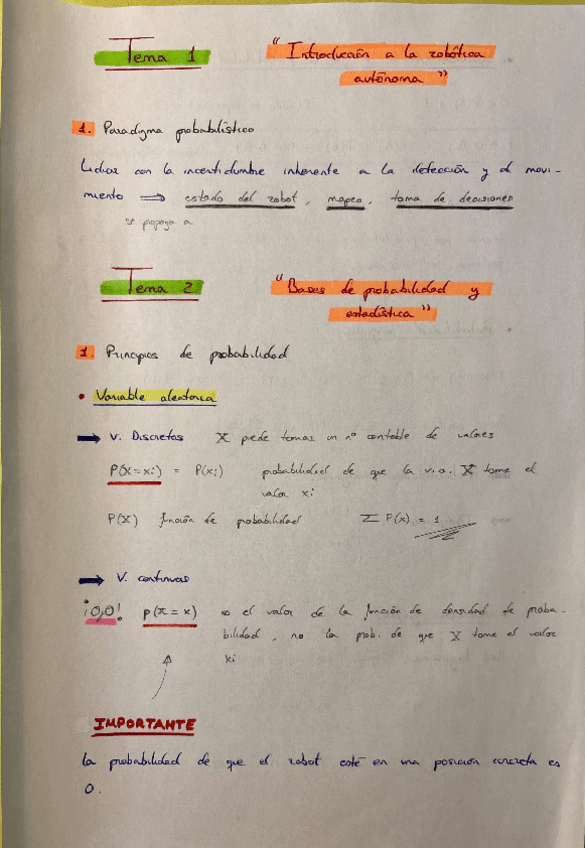 Tema 1 " Introducción a la robótica
autónoma "
1. Paradigma probabilístico
Lidiar con la incertidumbre inherente a la detección y al movi-
miento ⟹ estado del robot, mapeo, toma de decisiones
se propaga a
Tema 2 " Bases de probabilidad y
estadística "
1. Principios de probabilidad
• Variable aleatoria
→ V. Discretas X puede tomar un nº contable de valores
P(X=xi) = P(xi) probabilidad de que la v.a. X tome el
valor xi
P(X) función de probabilidad Σ P(x) = 1
→ V. continuas
¡O,O! p(X=x) es el valor de la función de densidad de proba-
bilidad, no la prob. de que X tome el valor
xi
IMPORTANTE
La probabilidad de que el robot esté en una posición concreta es
0.